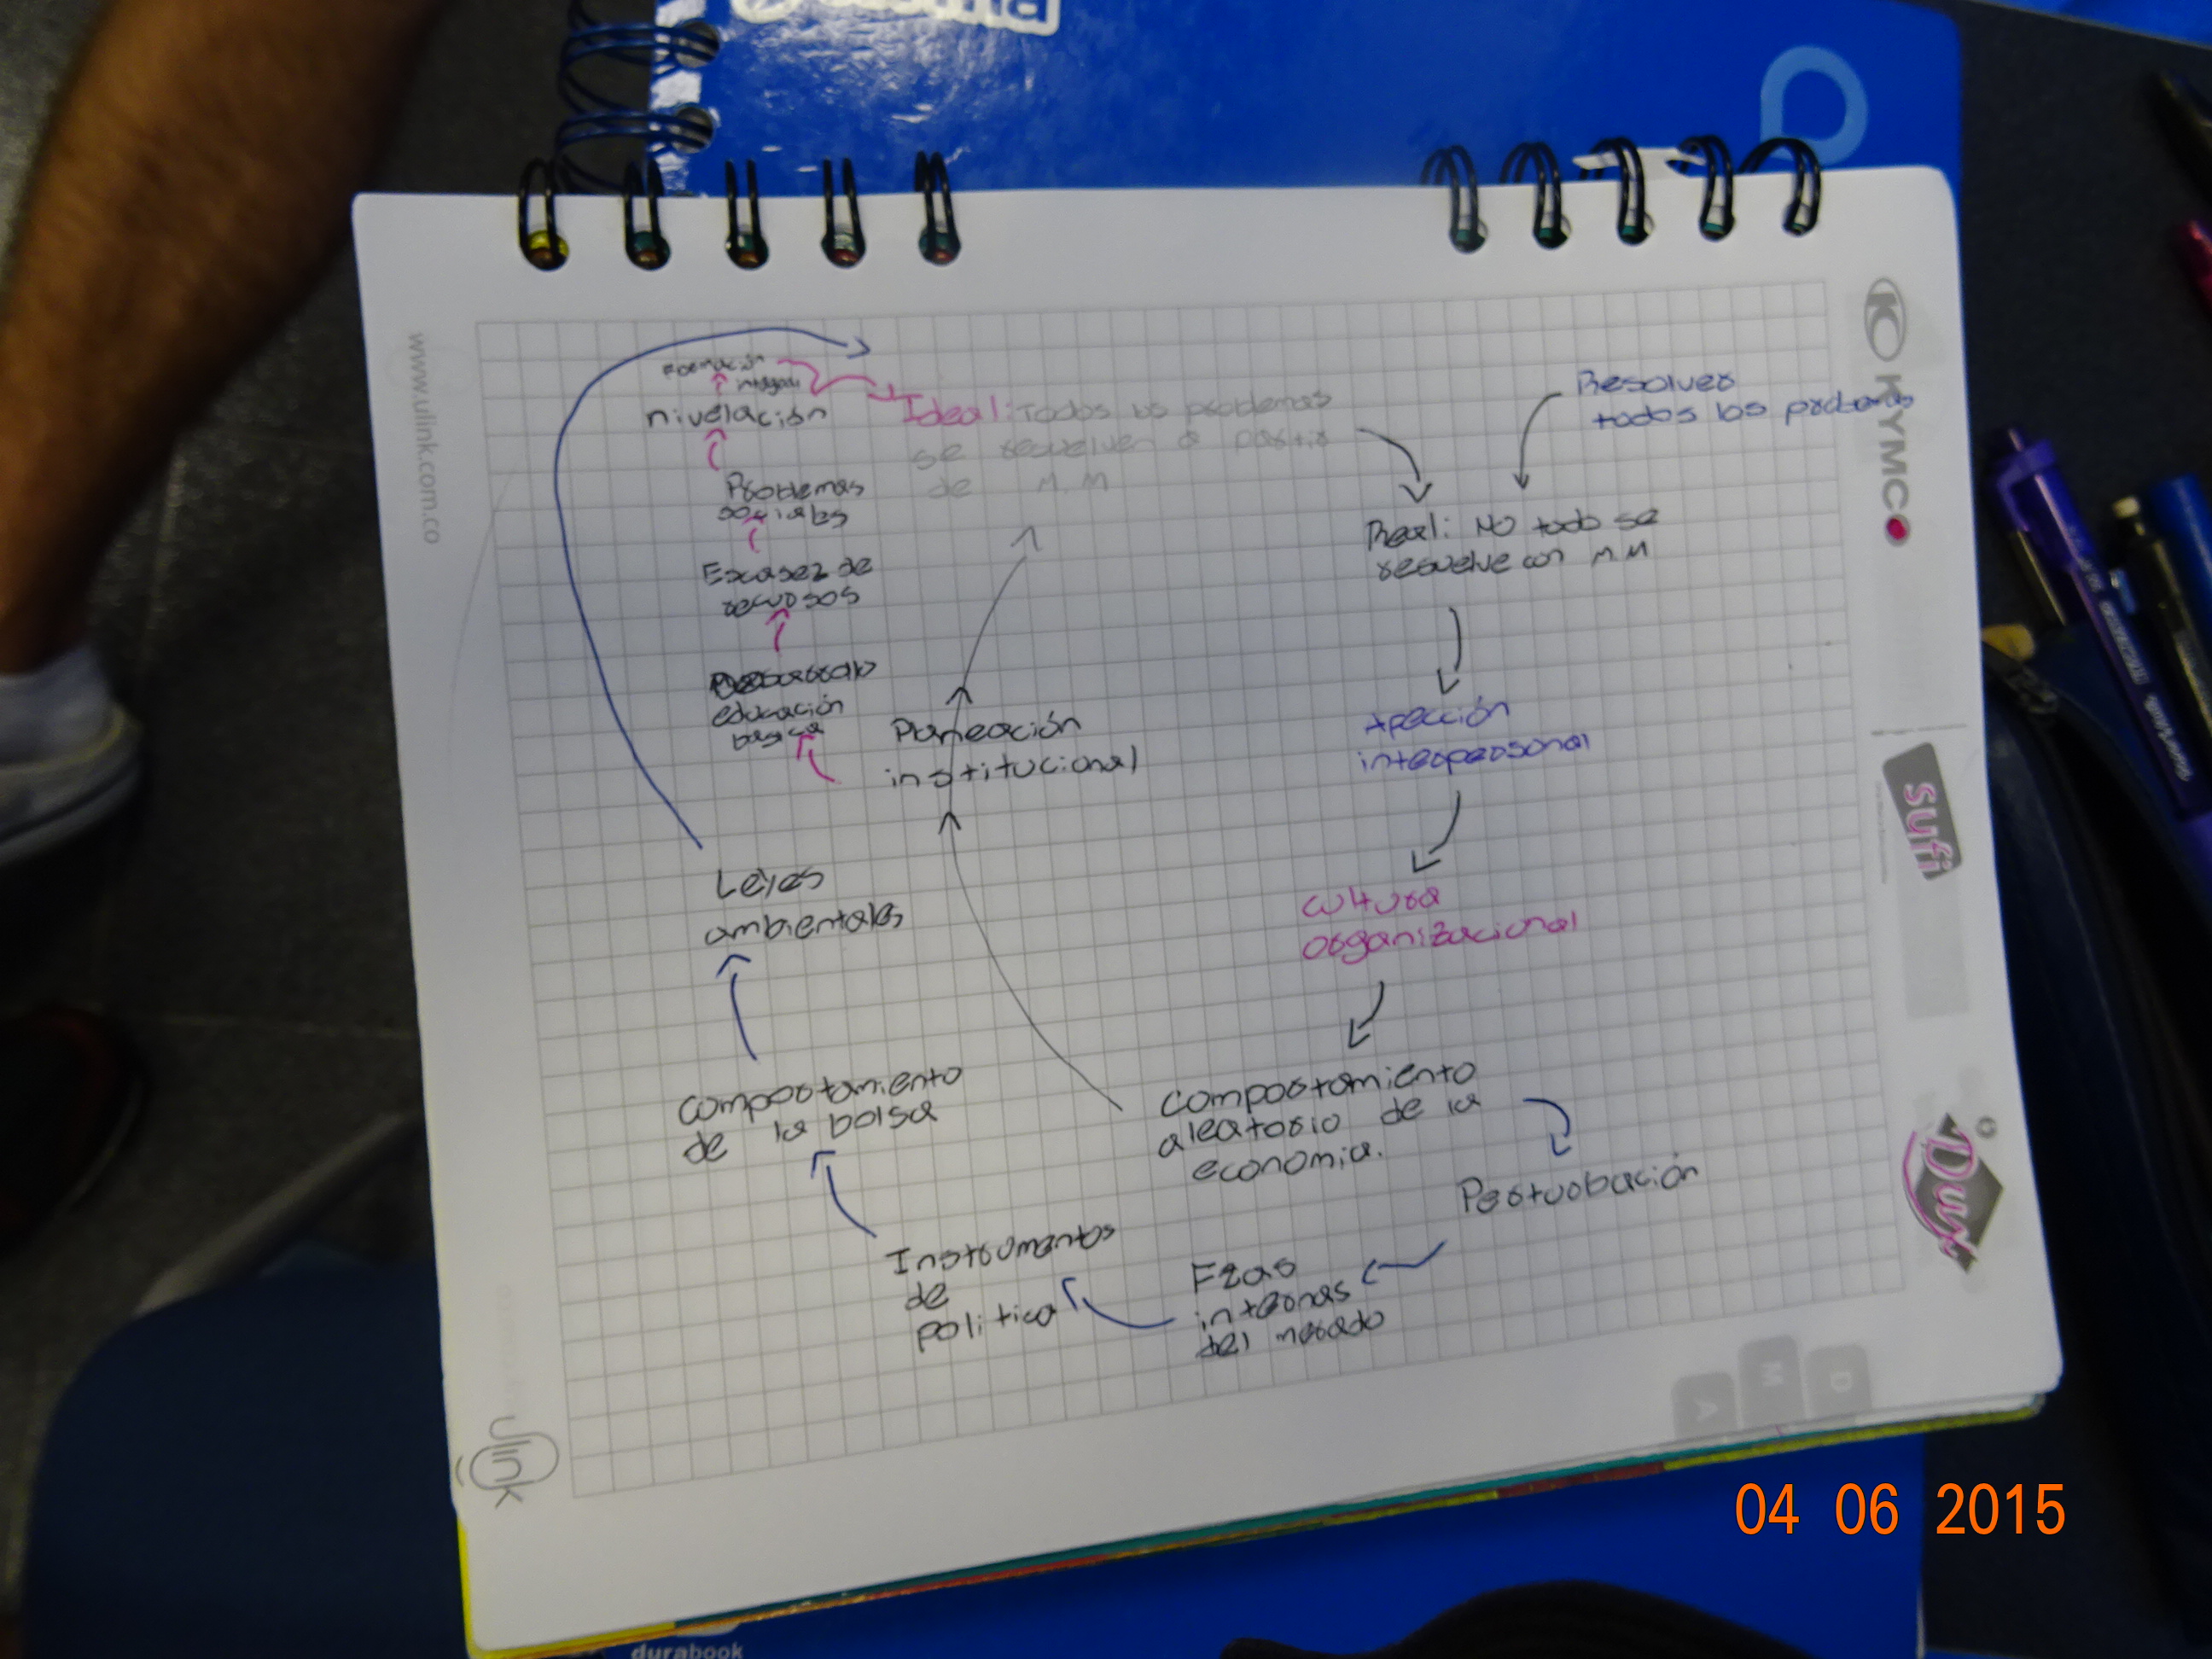 www.ulink.com.co
KYMCO
sufi
ulink
A
M
D
durabook
Formación
nivelación
Problemas
sociales
Escasez de
recursos
educación
basica
Ideal: Todos los problemas
se resuelven a partir
de M.M
Resolver
todos los problemas
Real: No todo se
resuelve con M.M
interpersonal
cultura
organizacional
Comportamiento
aleatorio de la
economia.
Perturbación
Fzas
internas
del
Instrumentos
de
politica
comportamiento
de la bolsa
Leyes
ambientales
Planeación
institucional
04 06 2015